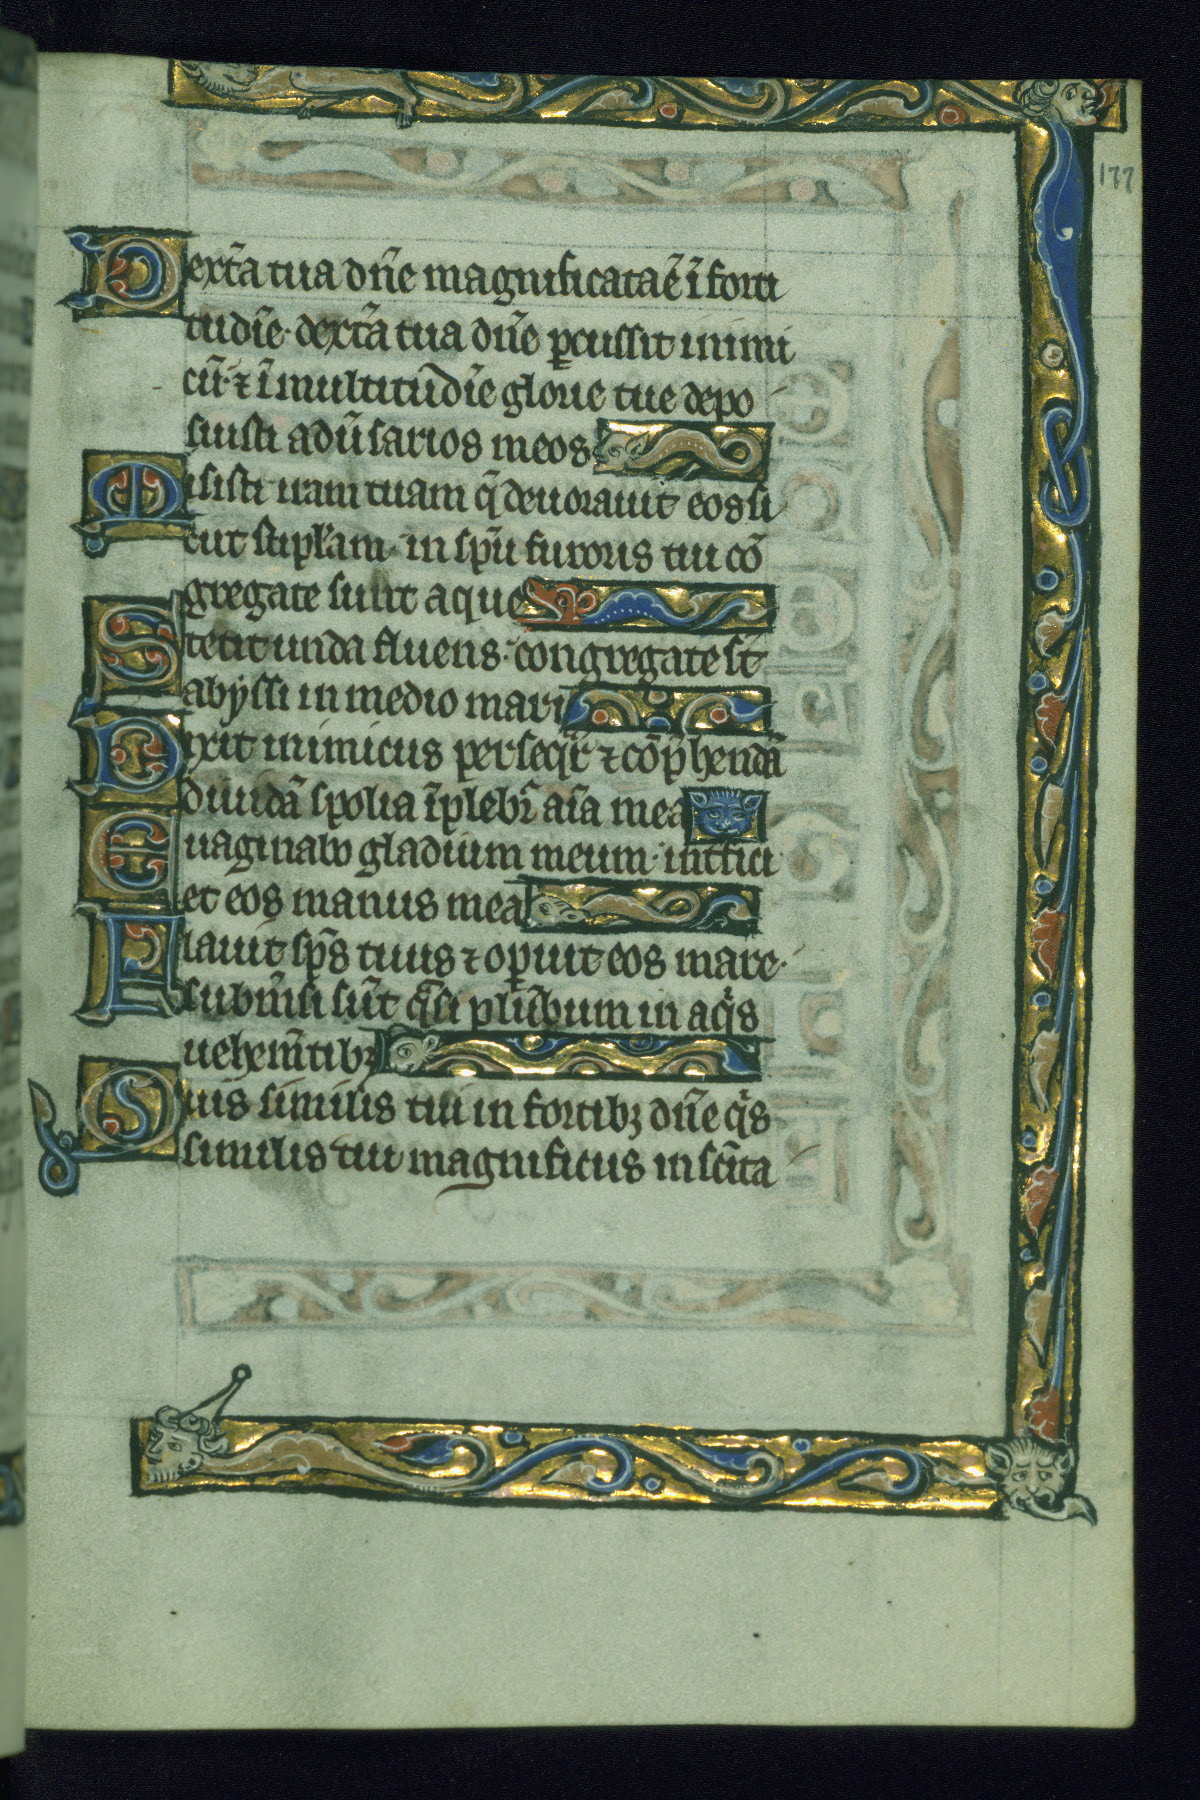 177
Dext̃a tua dn̄e magnificata ē ī forti
tudīe. dext̃a tua dn̄e ꝑcussit inimi
cū. ⁊ ī multitudīe glorie tue depo
suisti adũsarios meos
Misisti iram tuam q̄ deuorauit eos si
cut stipłam. in sp̄u furoris tui cō
gregate sunt aque
Stetit unda fluens. congregate st̄
abyssi in medio mari
Dixit inimicus persequr̄ ⁊ cōp̄hendā
diuidā spolia īplebr̄ aīa mea
Euaginabo gladium meum. int̃fici
et eos manus mea
Flauit sp̄s tuus ⁊ oꝑuit eos mare.
submsi sūt q̄si plūbum in aq̄s
uehem̄tibꝫ
Quis similis tui in fortibꝫ dn̄e q̄s
similis tui magnificus in sc̄ita